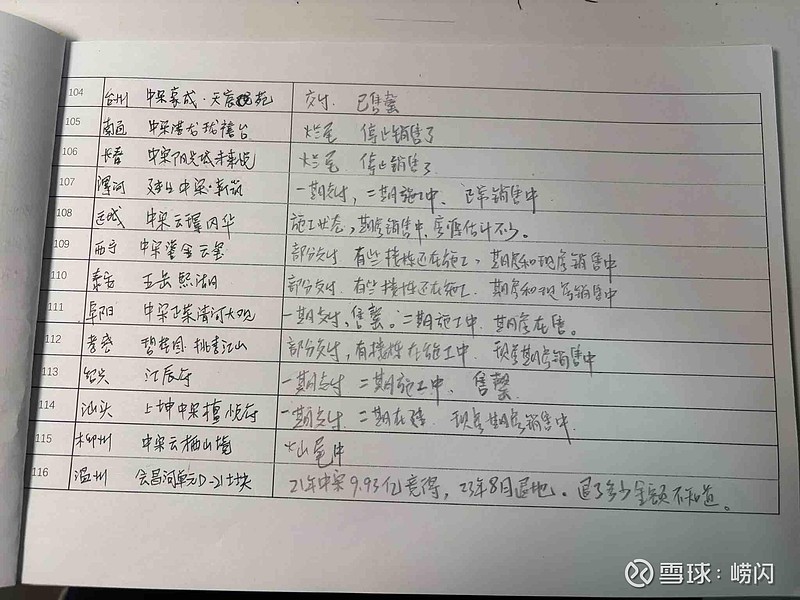 104 台州 中梁豪成·天宸苑 交付 已售罄
105 南通 中梁港龙珑禧台 烂尾 停止销售了
106 长春 中梁阳光城未来悦 烂尾 停止销售了
107 漯河 建业中梁·新筑 一期交付,二期施工中、正常销售中
108 运城 中梁云璟风华 施工状态,期房销售中,房源估计不少。
109 西宁 中梁鎏金云玺 部分交付 有些楼栋还在施工、期房和现房销售中
110 泰安 五岳熙湖 部分交付 有些楼栋还在施工、期房和现房销售中
111 阜阳 中梁正荣清河大观 一期交付,售罄。二期施工中、期房在售。
112 孝感 碧桂园·桃李江山 部分交付,有楼栋在施工中、现房期房销售中
113 绍兴 江辰府 一期交付 二期施工中、售罄
114 汕头 上坤中梁檀悦府 一期交付、二期在建、现房期房销售中
115 柳州 中梁云栖山境 烂尾中
116 温州 会昌河单元D-21地块 21年中梁9.93亿竞得,23年8月退地。退了多少金额不知道。
雪球:崂闪